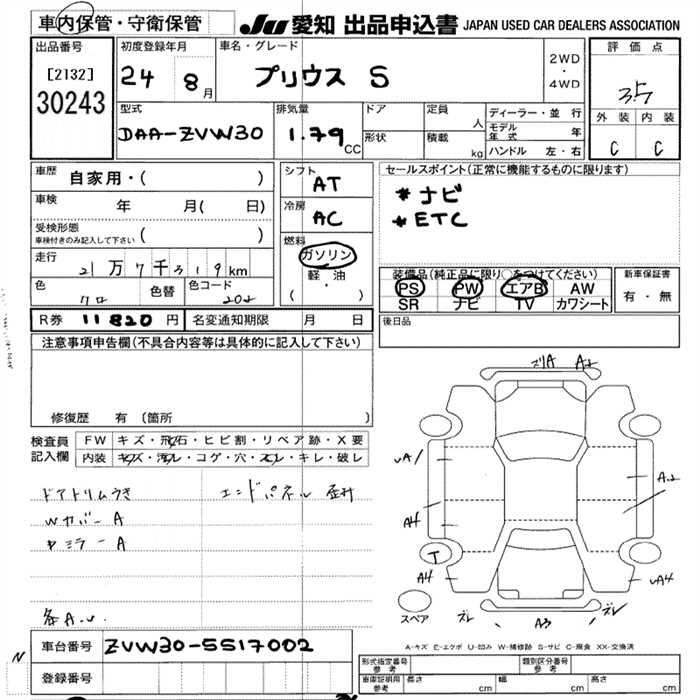 車内保管・守衛保管
JU 愛知 出品申込書 JAPAN USED CAR DEALERS ASSOCIATION
出品番号
[2132]
30243
初度登録年月
24 8月
車名・グレード
プリウス S
2WD
・
4WD
評価点
3.5
外装 内装
C C
型式
DAA-ZVW30
排気量
1.79 CC
ドア
形状
定員 人
積載 kg
ディーラー・並行
モデル年式 年
ハンドル 左・右
車歴 自家用・( )
車検 年 月( 日)
受検形態
車検付きのみ記入して下さい ( )
走行 21万7千319km
色 クロ 色替 色コード 202
シフト
AT
冷房
AC
燃料
ガソリン
軽油
・
( )
セールスポイント(正常に機能するものに限ります)
*ナビ
*ETC
装備品(純正品に限り○をつけてください)
PS PW エアB AW
SR ナビ TV カワシート
新車保証書
有・無
R券 11820円 名変通知期限 月 日
後日品
注意事項申告欄(不具合内容等は具体的に記入して下さい)
修復歴 有 (箇所 )
検査員
記入欄
FW キズ・飛石・ヒビ割・リペア跡・X要
内装 キズ・汚レ・コゲ・穴・スレ・キレ・破レ
ドアトリムうき エンドパネル歪み
Wカバー A
ヤミラー A
各A.U.
ズリA A2
UA1
A2
A4
T
A4
UA4
スペア
ズレ A3 ズレ
A-キズ E-エクボ U-凹み W-補修跡 S-サビ C-腐食 XX-交換済
N
車台番号 ZVW30-5517002
登録番号
形式指定番号 参考
類別区分番号 参考
車庫証明用 参考 長さ cm 幅 cm 高さ cm